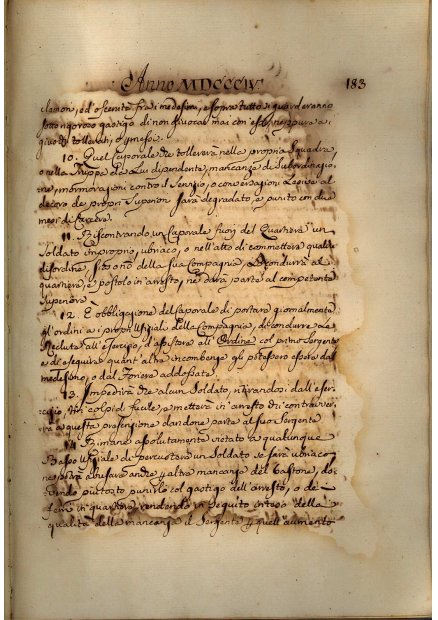 Anno MDCCCIV.
183
clamori, ed oscenità fra i medesimi, e sopra tutto si guarderanno
sotto rigoroso gastigo di non giuocar mai con essi, neppure a
giuochi tollerati, o permessi.
10. Quel Caporale che tollererà nella propria Squadra,
o nella Truppa da Lui dipendente, mancanza di Subordinazio
ne, mormorazioni contro il Servizio, o conversazioni Lesive al
decoro de propri Superiori sarà degradato, e punito con due
mesi di Carcere.
11. Riscontrando un Caporale fuori del Quartiere un
Soldato improprio, ubriaco, o nell'atto di commettere qualche
disordine, sia o nò della sua Compagnia, lo condurrà al
quartiere, e postolo in arresto, ne darà parte al competente
Superiore.
12. È obbligazione del Caporale di portare giornalmente
gl'ordini ai propri Uffiziali della Compagnia, di condurre le
Reclute all'Esercizio, d'assistere all'Ordine col primo Sergente
e di eseguire quant'altre incombenze gli potessero essere da
medesimo, o dal Foriere addossate.
13. Impedirà che alcun Soldato, ritirandosi dall'eser
cizio, tiri colpi di fucile, e metterà in arresto chi contravver
rà a questa proibizione dandone parte al suo Sergente
14. Rimane assolutamente vietato a qualunque
Basso Uffiziale di percuotere un Soldato se sarà ubriaco,
nè potrà abusare anche per altre mancanze del bastone, do
vendo piuttosto punirlo col gastigo dell'arresto, o de
ferri in quartiere, rendendo in seguito inteso della
qualità della mancanza il Sergente per quell'aumento